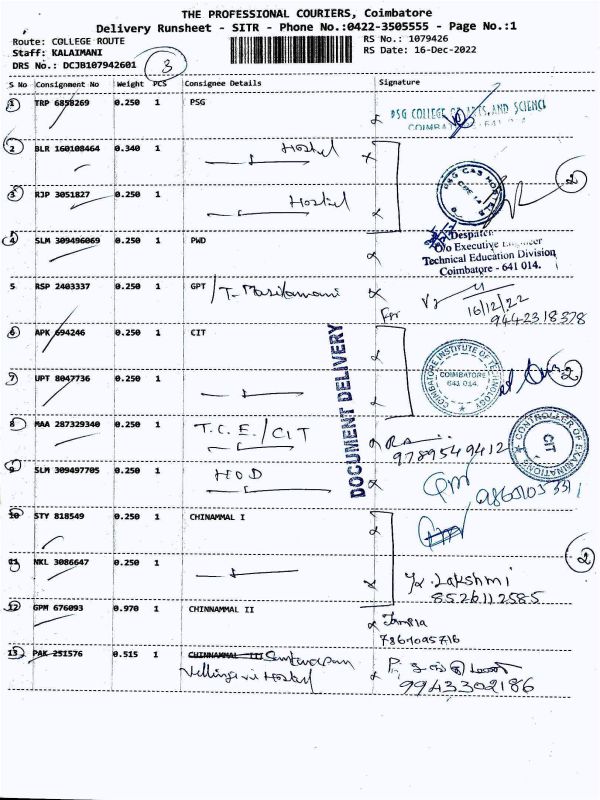 THE PROFESSIONAL COURIERS, Coimbatore
Delivery Runsheet - SITR - Phone No.:0422-3505555 - Page No.:1
Route: COLLEGE ROUTE
RS No.: 1079426
Staff: KALAIMANI
RS Date: 16-Dec-2022
DRS No.: DCJB107942601
3
S No Consignment No Weight PCS Consignee Details Signature
1 TRP 6858269 0.250 1 PSG
PSG COLLEGE OF ARTS AND SCIENCE
2 BLR 160108464 0.340 1 Hostel
3 RJP 3051827 0.250 1 Hostel
PSG CAS HOSTELS
2
4 SLM 309496069 0.250 1 PWD
Despatch
O/o Executive Engineer
Technical Education Division
Coimbatore - 641 014.
5 RSP 2403337 0.250 1 GPT / T. Masilamani
For
16/12/22
9442318378
6 APK 694246 0.250 1 CIT
COIMBATORE INSTITUTE OF TECHNOLOGY
COIMBATORE
641 014
2
7 UPT 8047736 0.250 1
DOCUMENT DELIVERY
8 MAA 287329340 0.250 1 T.C.E. / CIT
9789549412
CONTROLLER OF EXAMINATIONS
CIT
9 SLM 309497705 0.250 1 HOD
10 STY 818549 0.250 1 CHINNAMMAL I
11 NKL 3086647 0.250 1
Lakshmi
8526112585
2
12 GPM 676093 0.970 1 CHINNAMMAL II
7867095716
13 PAK 251576 0.515 1 CHINNAMMAL III
Hostel
9943302186